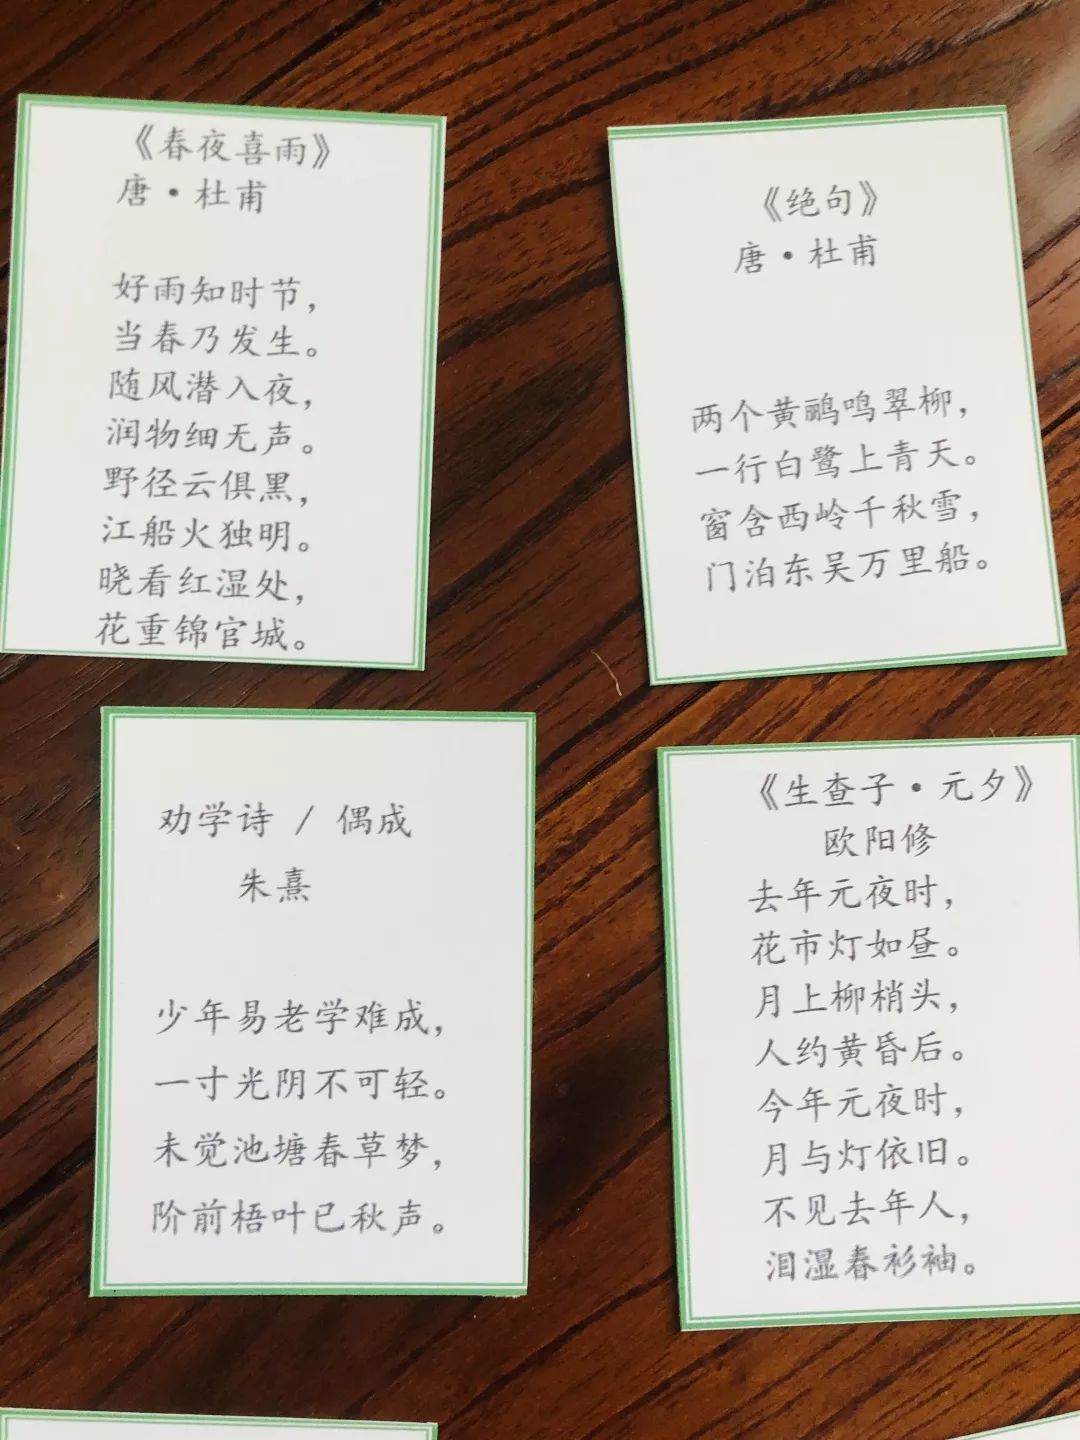 《春夜喜雨》
唐·杜甫
好雨知时节，
当春乃发生。
随风潜入夜，
润物细无声。
野径云俱黑，
江船火独明。
晓看红湿处，
花重锦官城。
《绝句》
唐·杜甫
两个黄鹂鸣翠柳，
一行白鹭上青天。
窗含西岭千秋雪，
门泊东吴万里船。
劝学诗 / 偶成
朱熹
少年易老学难成，
一寸光阴不可轻。
未觉池塘春草梦，
阶前梧叶已秋声。
《生查子·元夕》
欧阳修
去年元夜时，
花市灯如昼。
月上柳梢头，
人约黄昏后。
今年元夜时，
月与灯依旧。
不见去年人，
泪湿春衫袖。